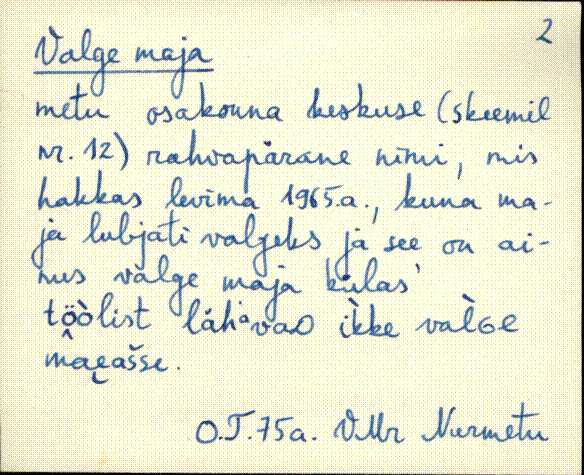 2
Valge maja
metu osakonna keskuse (skeemil
nr. 12) rahvapärane nimi, mis
hakkas levima 1965.a., kuna ma-
ja lubjati valgeks ja see on ai-
nus valge maja külas
töölist lähävaD ìkke valGe
maeašse.
O.T. 75a. VMr Nurmetu